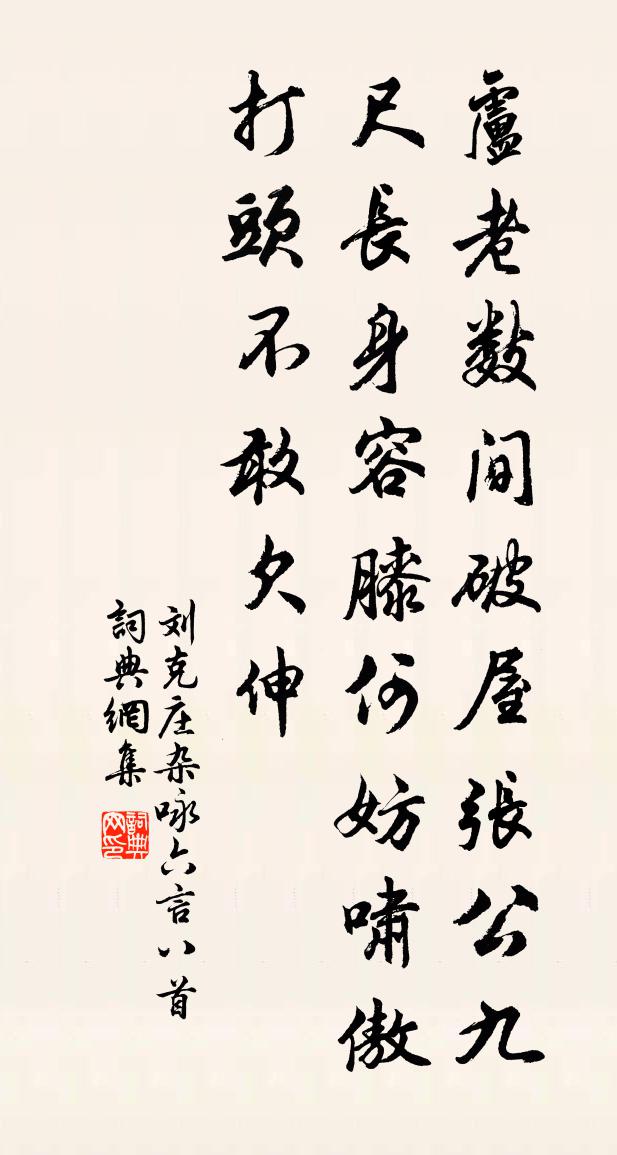 盧老数間破屋張公九
尺長身容膝何妨嘯傲
打頭不敢欠伸
刘克庄杂咏六言八首
詞典網集
詞典网印